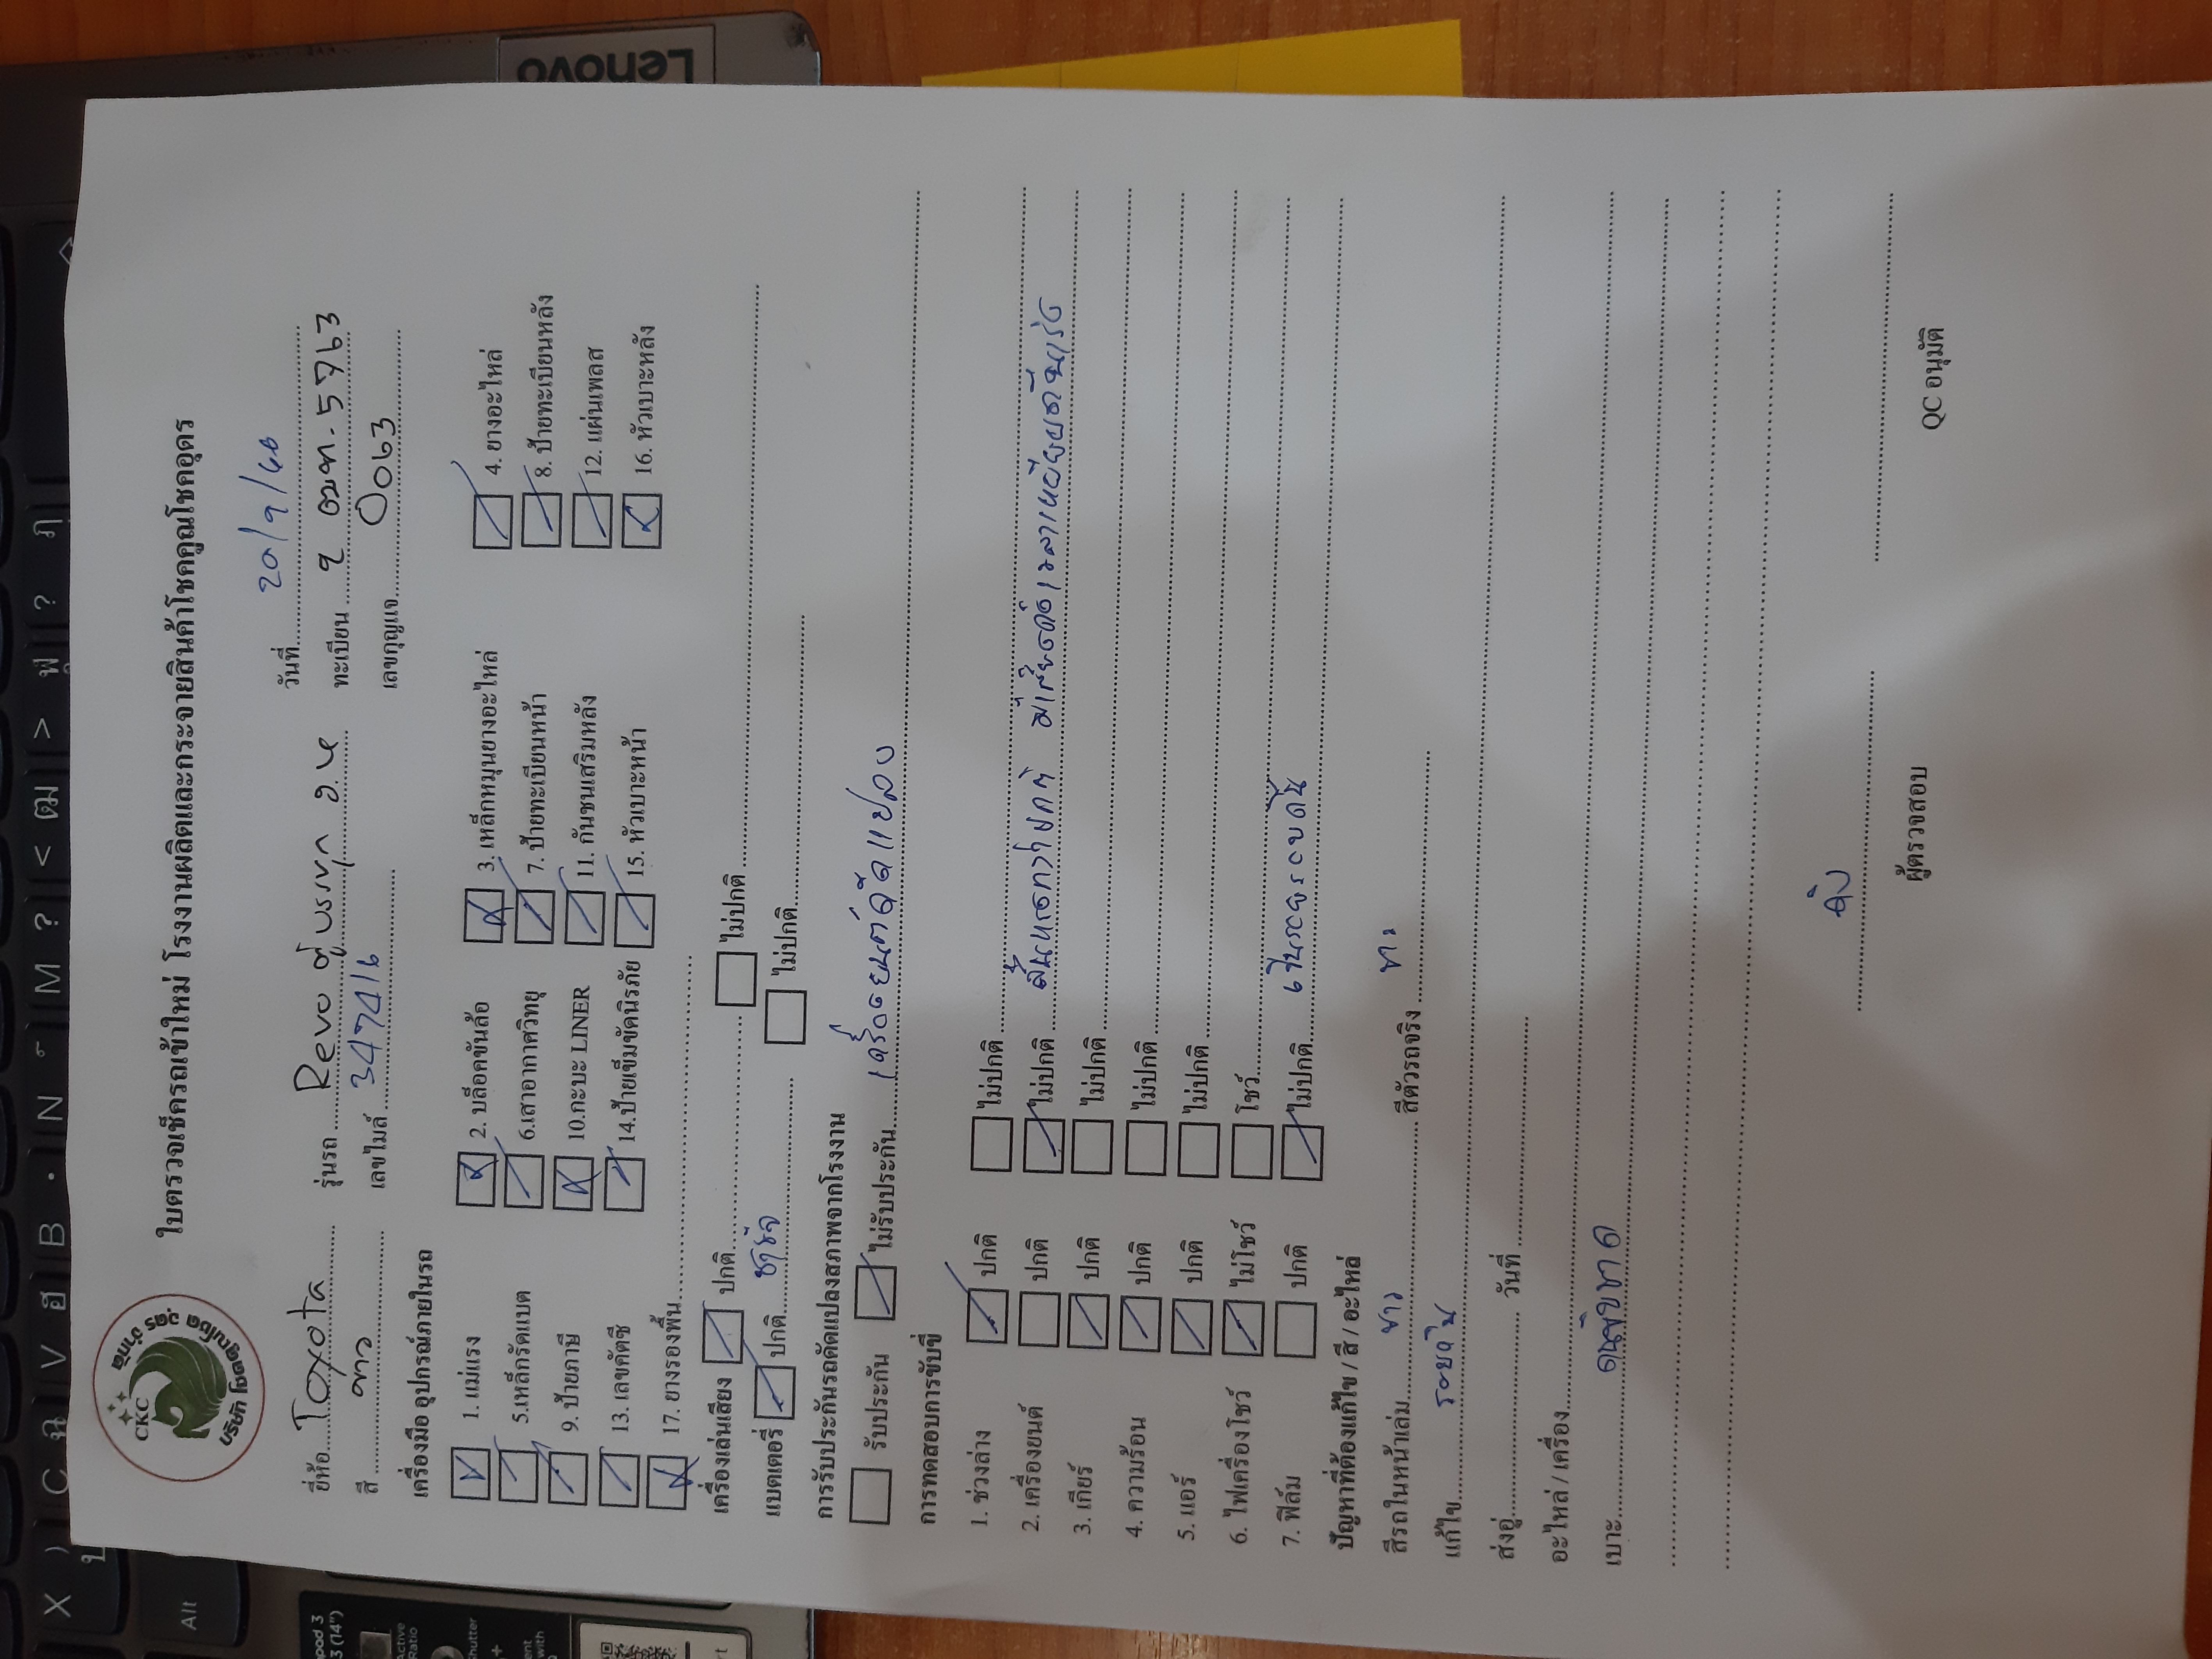 Lenovo
CKC
บริษัท โชคคูณโชค อุดร จำกัด
ใบตรวจเช็ครถเข้าใหม่ โรงงานผลิตและกระจายสินค้าโชคคูณโชคอุดร
วันที่ 20/9/68
ยี่ห้อ Toyota รุ่นรถ Revo ตู้บรรทุก ทะเบียน 5763
สี ขาว เลขไมล์ 347416 เลขกุญแจ 0063
เครื่องมือ อุปกรณ์ภายในรถ
1. แม่แรง 2. บล็อคขันล้อ 3. เหล็กหมุนยางอะไหล่ 4. ยางอะไหล่
5.เหล็กรัดแบต 6.เสาอากาศวิทยุ 7. ป้ายทะเบียนหน้า 8. ป้ายทะเบียนหลัง
9. ป้ายภาษี 10.กะบะ LINER 11. กันชนเสริมหลัง 12. แผ่นเพลส
13. เลขคัตซี 14.ป้ายเข็มขัดนิรภัย 15. หัวเบาะหน้า 16. หัวเบาะหลัง
17. ยางรองพื้น
เครื่องเล่นเสียง ปกติ ไม่ปกติ
แบตเตอรี่ ปกติ ไม่ปกติ
การรับประกันรถดัดแปลงสภาพจากโรงงาน
รับประกัน ไม่รับประกัน เครื่องยนต์ดัดแปลง
การทดสอบการขับขี่
1. ช่วงล่าง ปกติ ไม่ปกติ
2. เครื่องยนต์ ปกติ ไม่ปกติ สั่นมากกว่าปกติ
3. เกียร์ ปกติ ไม่ปกติ
4. ความร้อน ปกติ ไม่ปกติ
5. แอร์ ปกติ ไม่ปกติ
6. ไฟเครื่องโชว์ ไม่โชว์ โชว์
7. ฟิล์ม ปกติ ไม่ปกติ
ปัญหาที่ต้องแก้ไข / สี / อะไหล่
สีรถในหน้าเล่ม ขาว สีตัวรถจริง
แก้ไข
ส่งอู่ วันที่
อะไหล่ / เครื่อง
เบาะ
ผู้ตรวจสอบ QC อนุมัติ